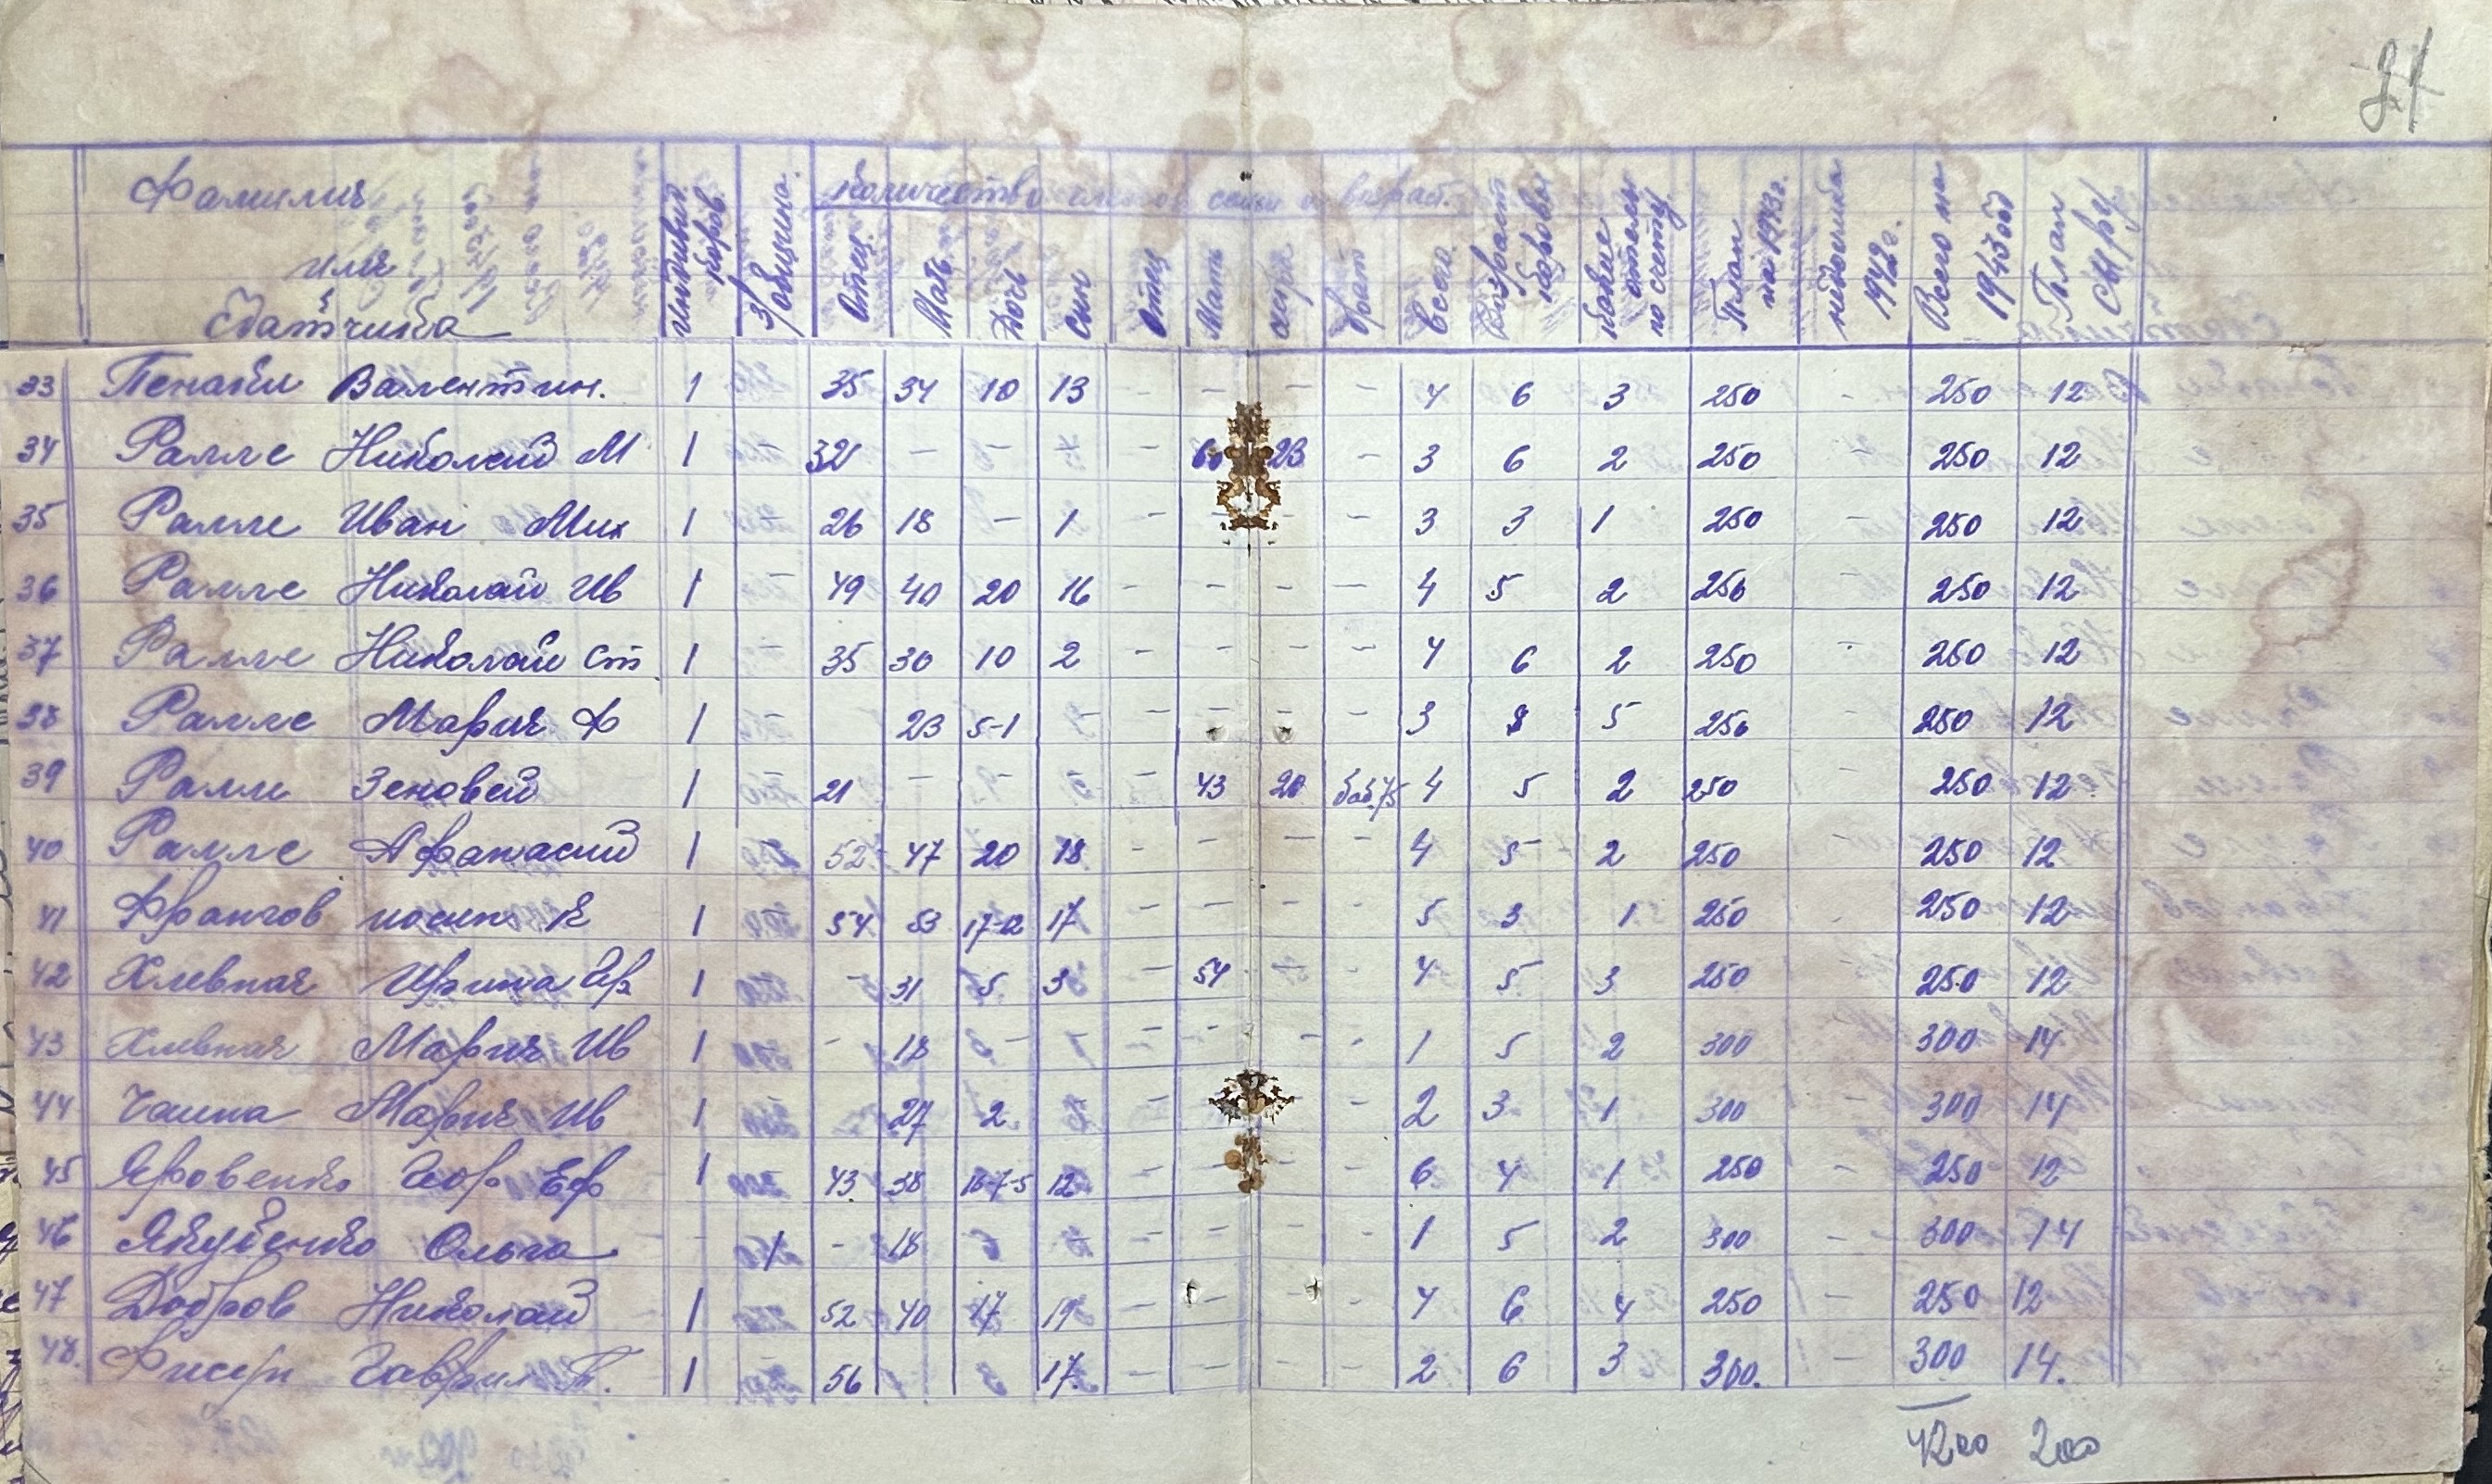 31
Фамилия имя сдатчика | Индивид. коров. | Зрощина. | Количество членов семьи и возраст. | План на 1943г. | недоимка 1942г. | Всего на 1943 год | План сыру
Отец | Мать | Дочь | Син | Отец | Мать | сестра | брат | Всего. | Возраст коровы | какие отелы по счету
33 Пенакли Валентин. 1 35 34 10 13 - - - - 4 6 3 250 - 250 12
34 Ралле Николай М 1 - 32 - - - 60 23 - 3 6 2 250 - 250 12
35 Ралле Иван Мих 1 26 18 - 1 - - - 3 3 1 250 - 250 12
36 Ралле Николай Ив 1 - 49 40 20 16 - - - - 4 5 2 250 - 250 12
37 Ралле Николай Ст 1 - 35 30 10 2 - - - - 4 6 2 250 - 250 12
38 Ралле Мария Ф 1 - 23 5-1 - - - - - 3 8 5 250 - 250 12
39 Ралли Зеновей 1 - 21 - - - - 43 20 баб.75 4 5 2 250 - 250 12
40 Ралле Афанасий 1 - 52 47 20 18 - - - - 4 5 2 250 - 250 12
41 Франгов 1 54 53 17-12 17 - - - - 5 3 1 250 250 12
42 Хлевная Ирина 1 - 31 5 3 - 54 - - 4 5 3 250 - 250 12
43 Хлевная Мария Ив 1 - 18 - - - - - - 1 5 2 300 - 300 14
44 Мария Ив 1 - 27 2 - - - 2 3 1 300 - 300 14
45 Яровенко Геор. Еф 1 43 38 16-7-5 12 - - - 6 4 1 250 - 250 12
46 Якубенко Ольга - 1 - 18 - - - - - 1 5 2 300 - 300 14
47 Добров Николай 1 52 40 17 19 - - - 4 6 4 250 - 250 12
48. Гаврил 1 - 56 17 - - - - 2 6 3 300. - 300 14.
4200 200